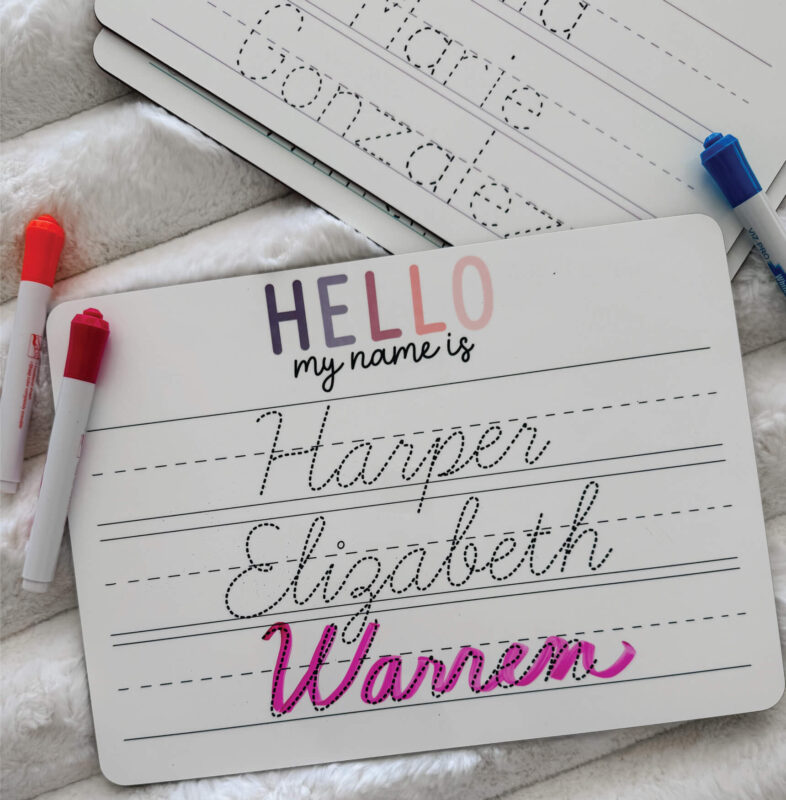 Marie
Gonzalez
VIZ PRO
HELLO
my name is
Harper
Elizabeth
Warren